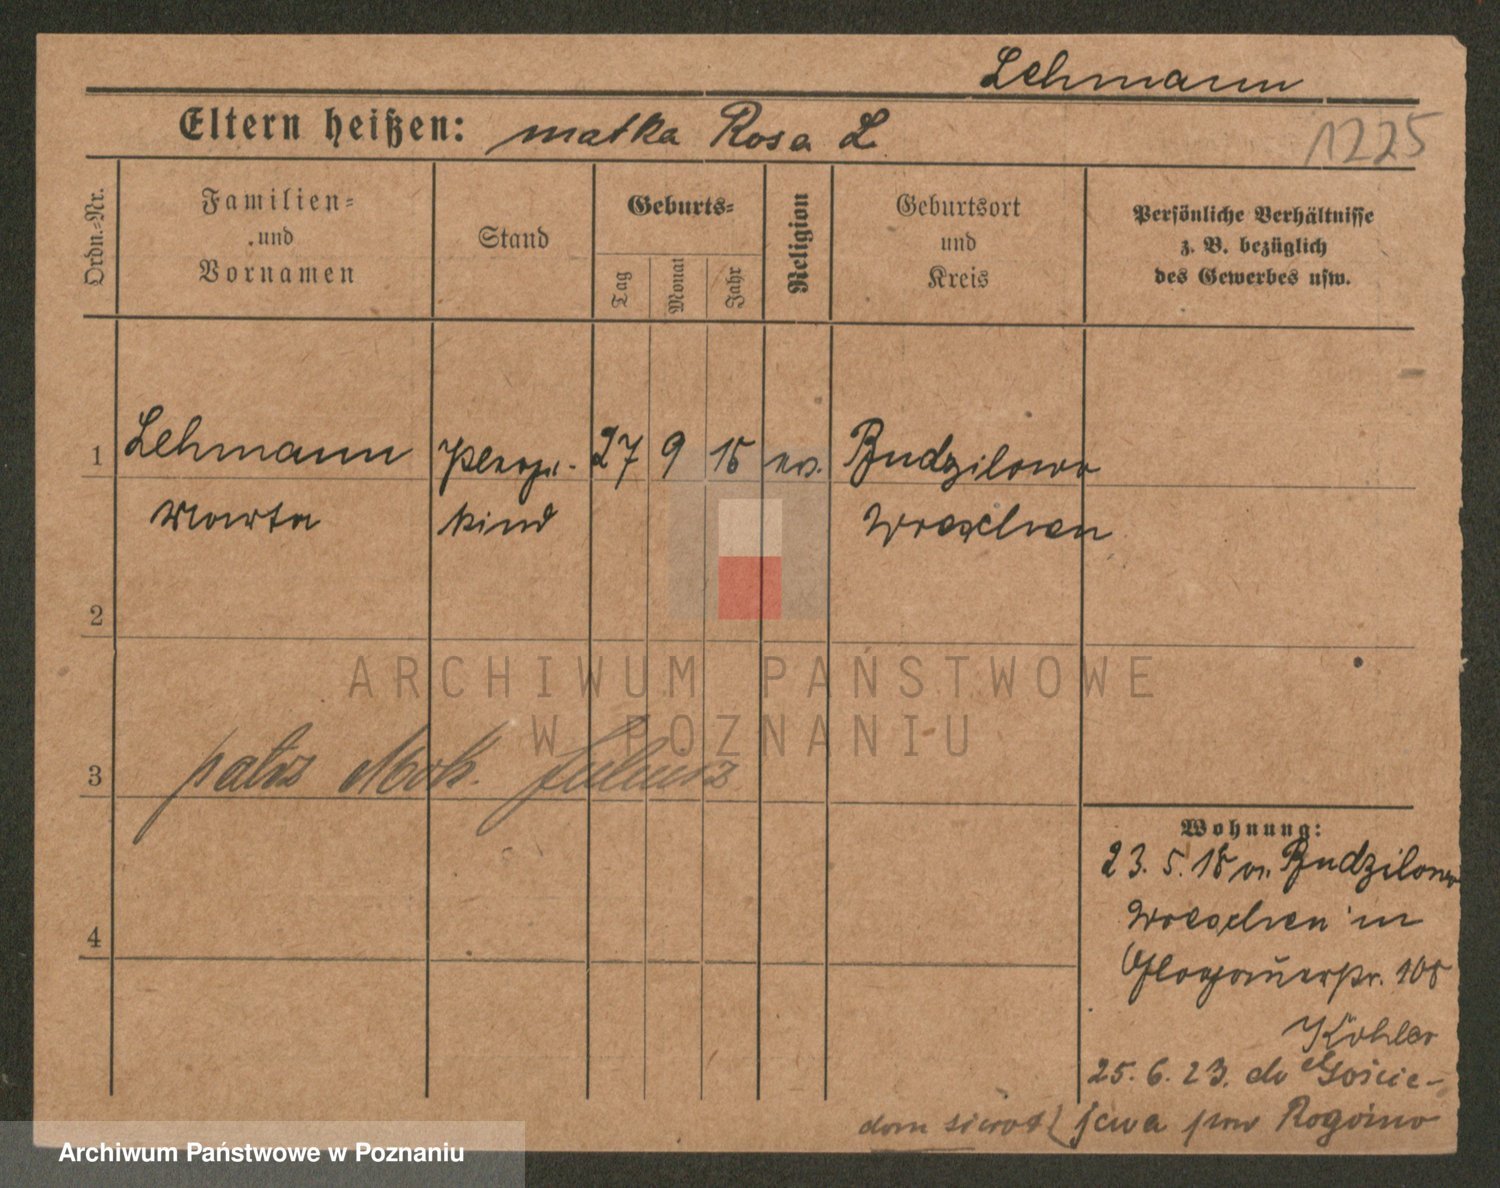 Lehmann
Eltern heißen: matka Rosa L.
1225
Ordn.-Nr.
Familien-
und
Vornamen
Stand
Geburts-
Tag
Monat
Jahr
Religion
Geburtsort
und
Kreis
Persönliche Verhältnisse
z. B. bezüglich
des Gewerbes usw.
1
Lehmann
Pflege-
27
9
15
ev.
Budzilowo
Marta
kind
Wreschen
2
ARCHIWUM PAŃSTWOWE
W POZNANIU
3
patrz
4
Wohnung:
23. 5. 18 v. Budzilowo
Wreschen in
Glogauerstr. 108
Köhler
25. 6. 23. do Goście-
dom sierot jewa pow Rogoźno
Archiwum Państwowe w Poznaniu